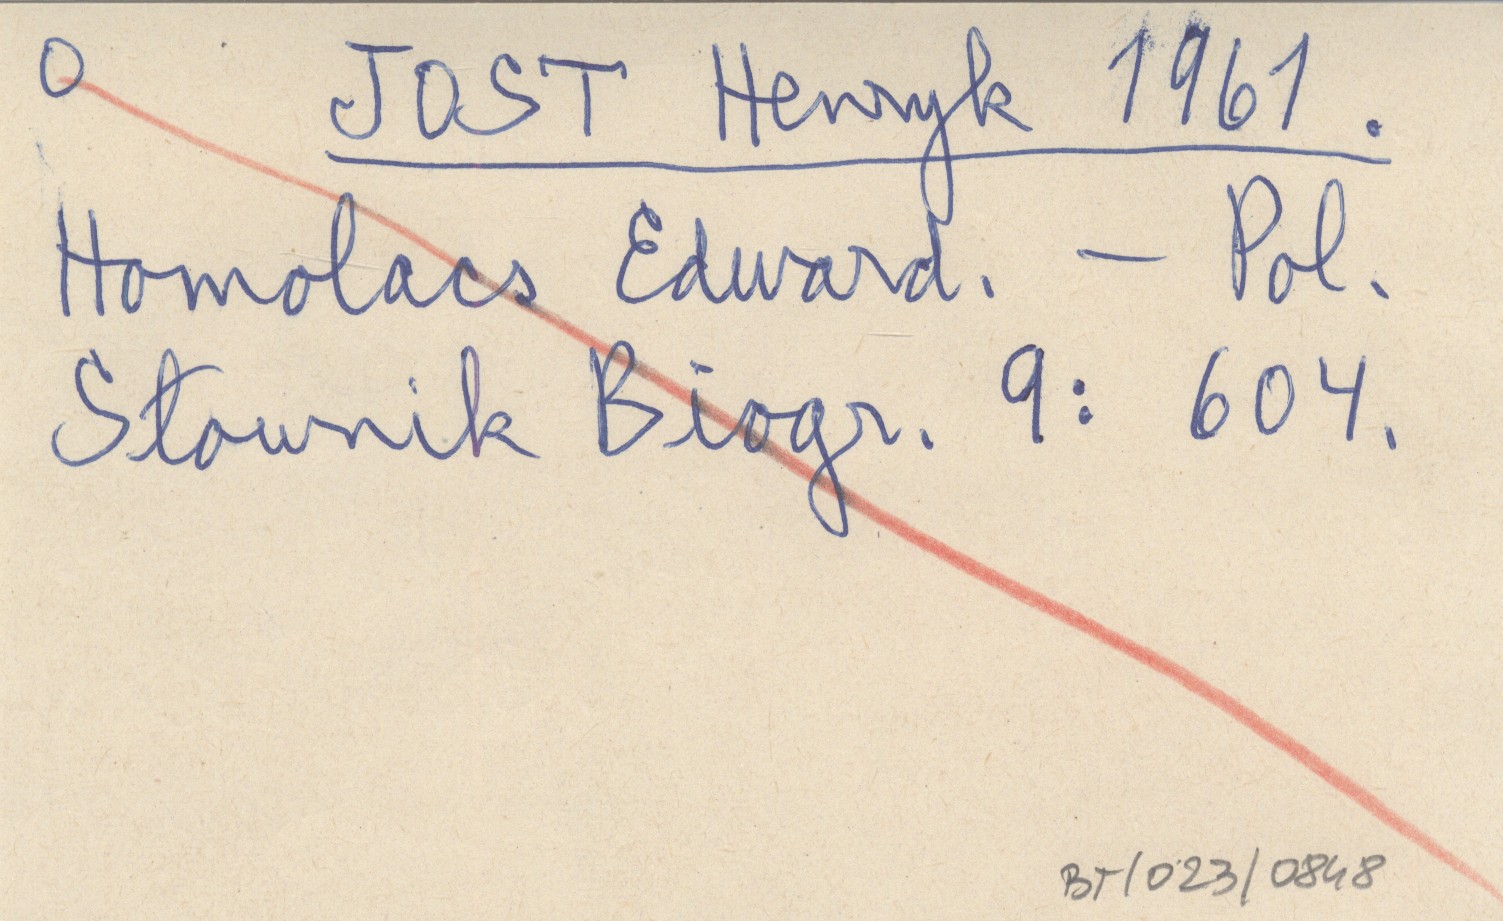 O JOST Henryk 1961.
Homolacs Edward. – Pol.
Słownik Biogr. 9: 604.
BT/023/0848